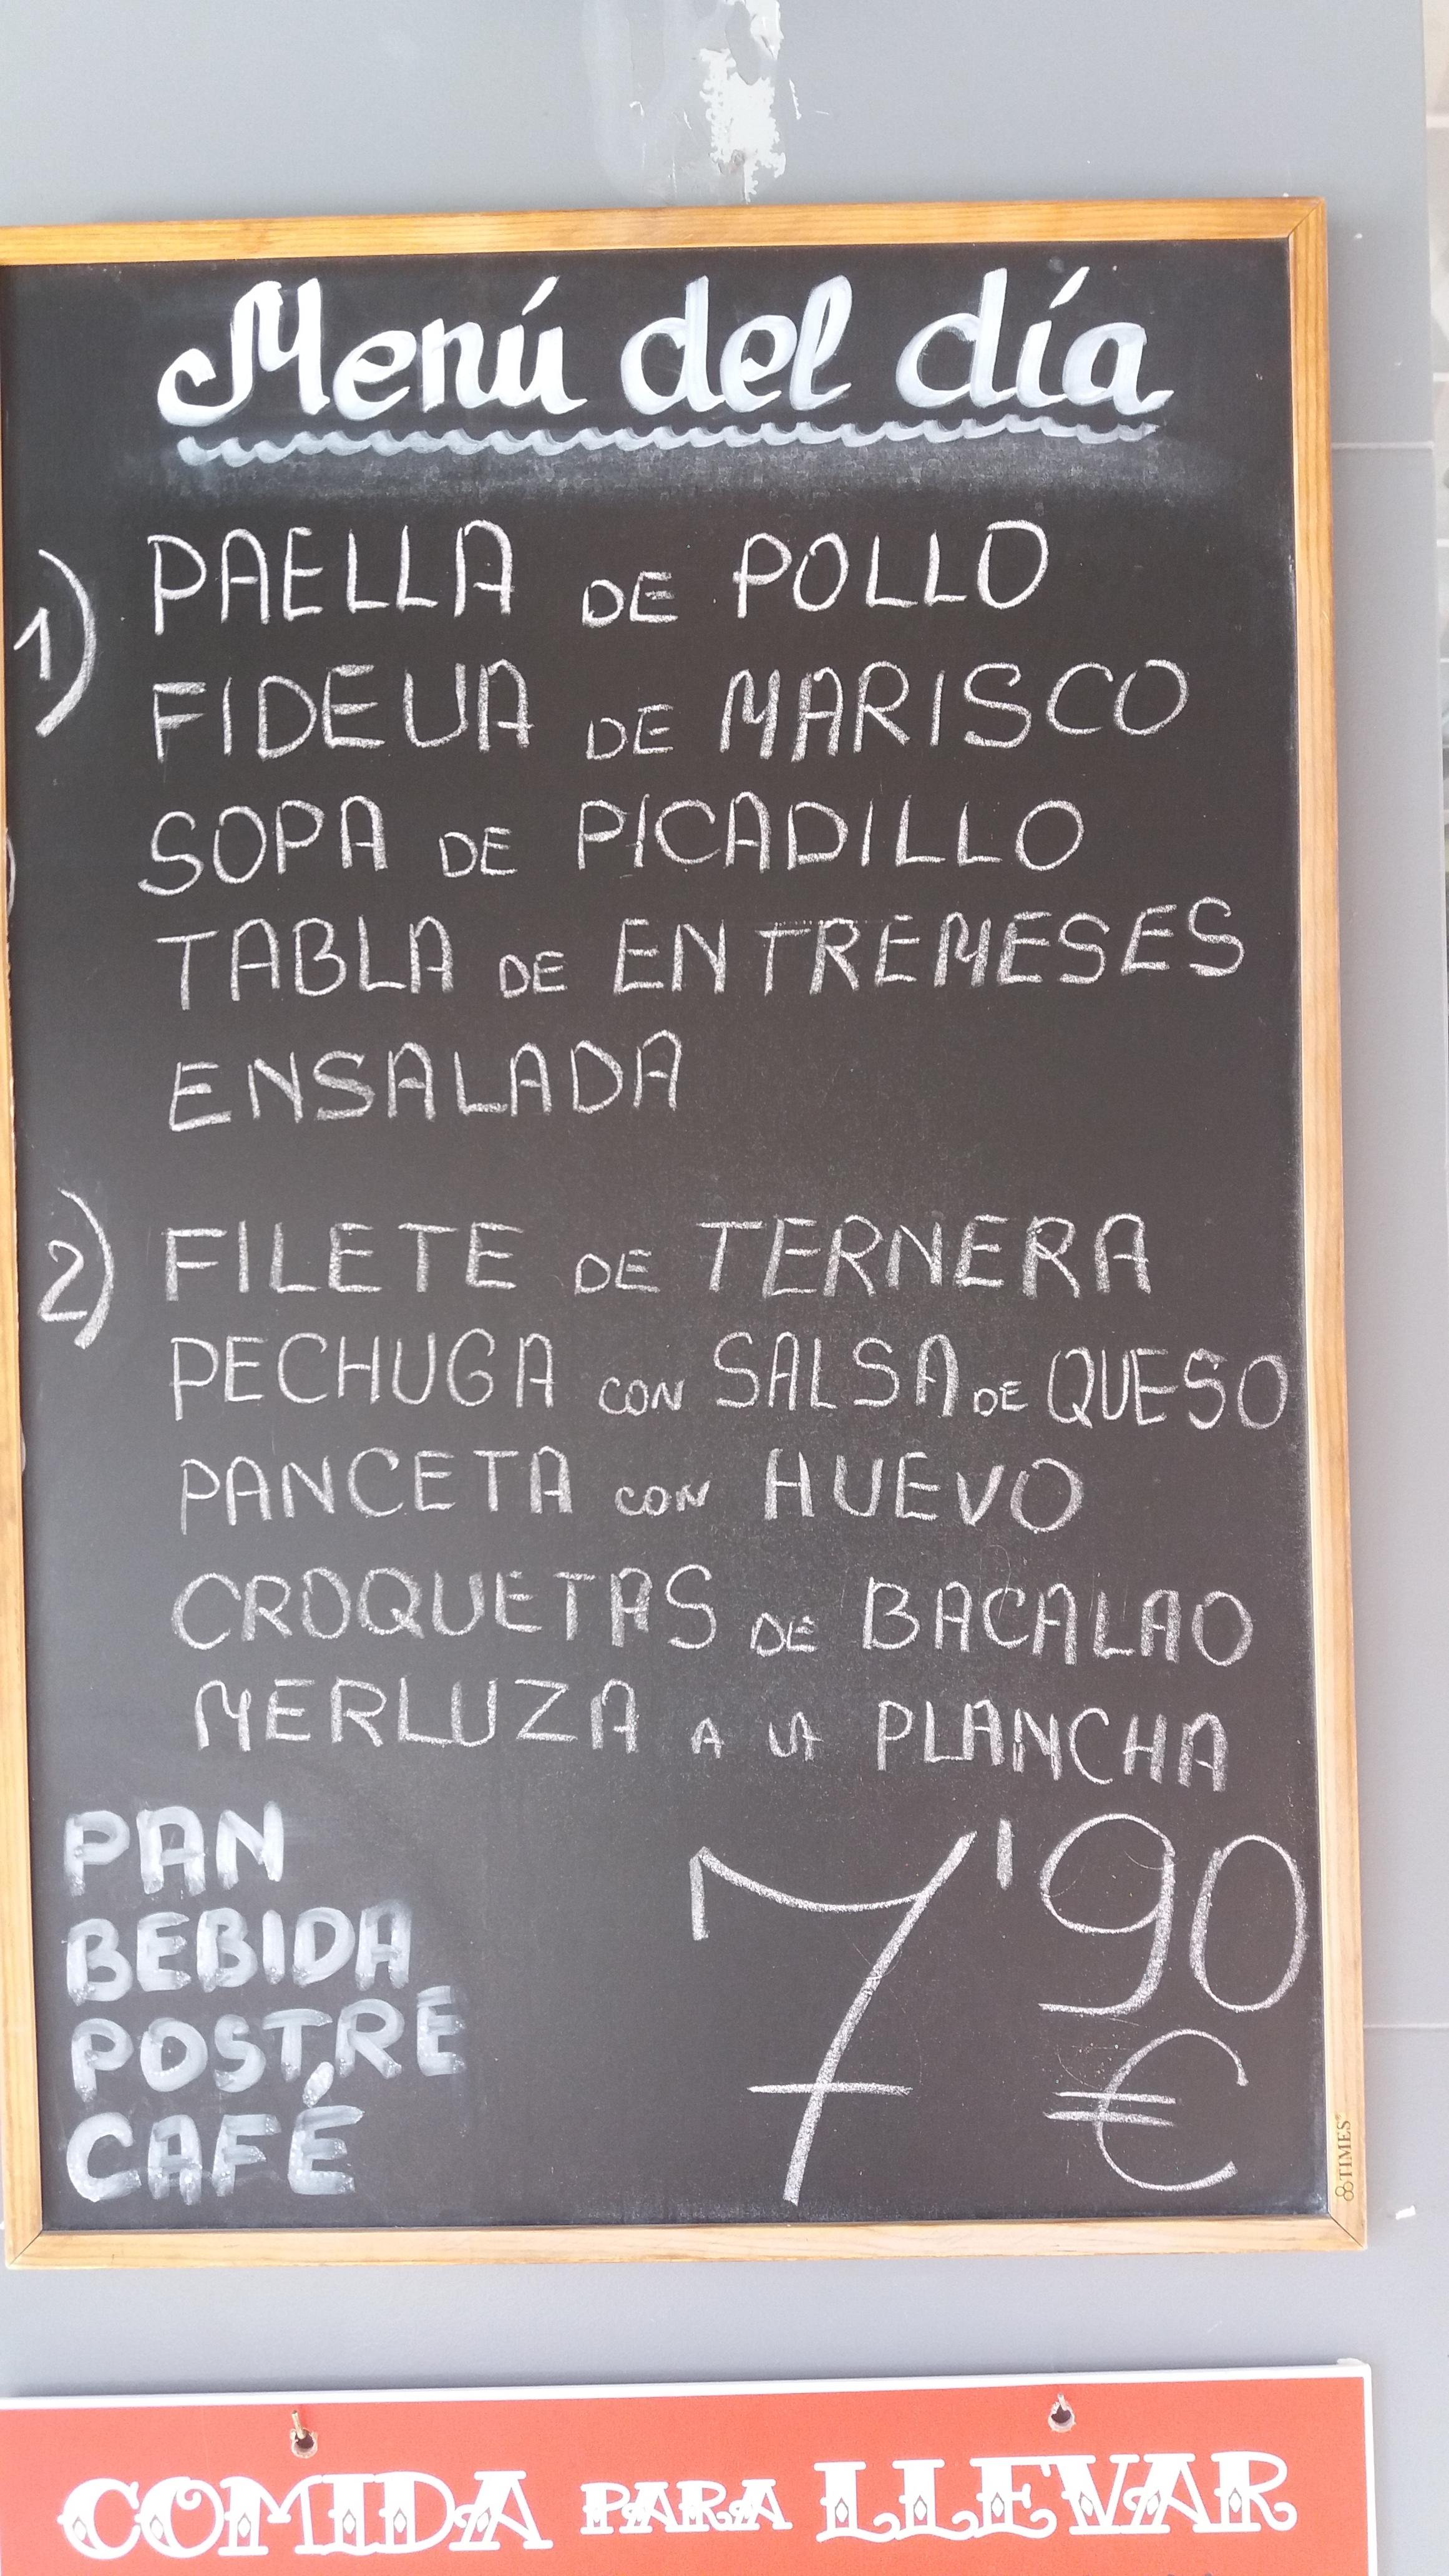 Menú del día
1) PAELLA DE POLLO
FIDEUA DE MARISCO
SOPA DE PICADILLO
TABLA DE ENTREMESES
ENSALADA
2) FILETE DE TERNERA
PECHUGA CON SALSA DE QUESO
PANCETA CON HUEVO
CROQUETAS DE BACALAO
MERLUZA A LA PLANCHA
PAN
BEBIDA
POSTRE
CAFÉ
7'90
€
TIMES
COMIDA PARA LLEVAR